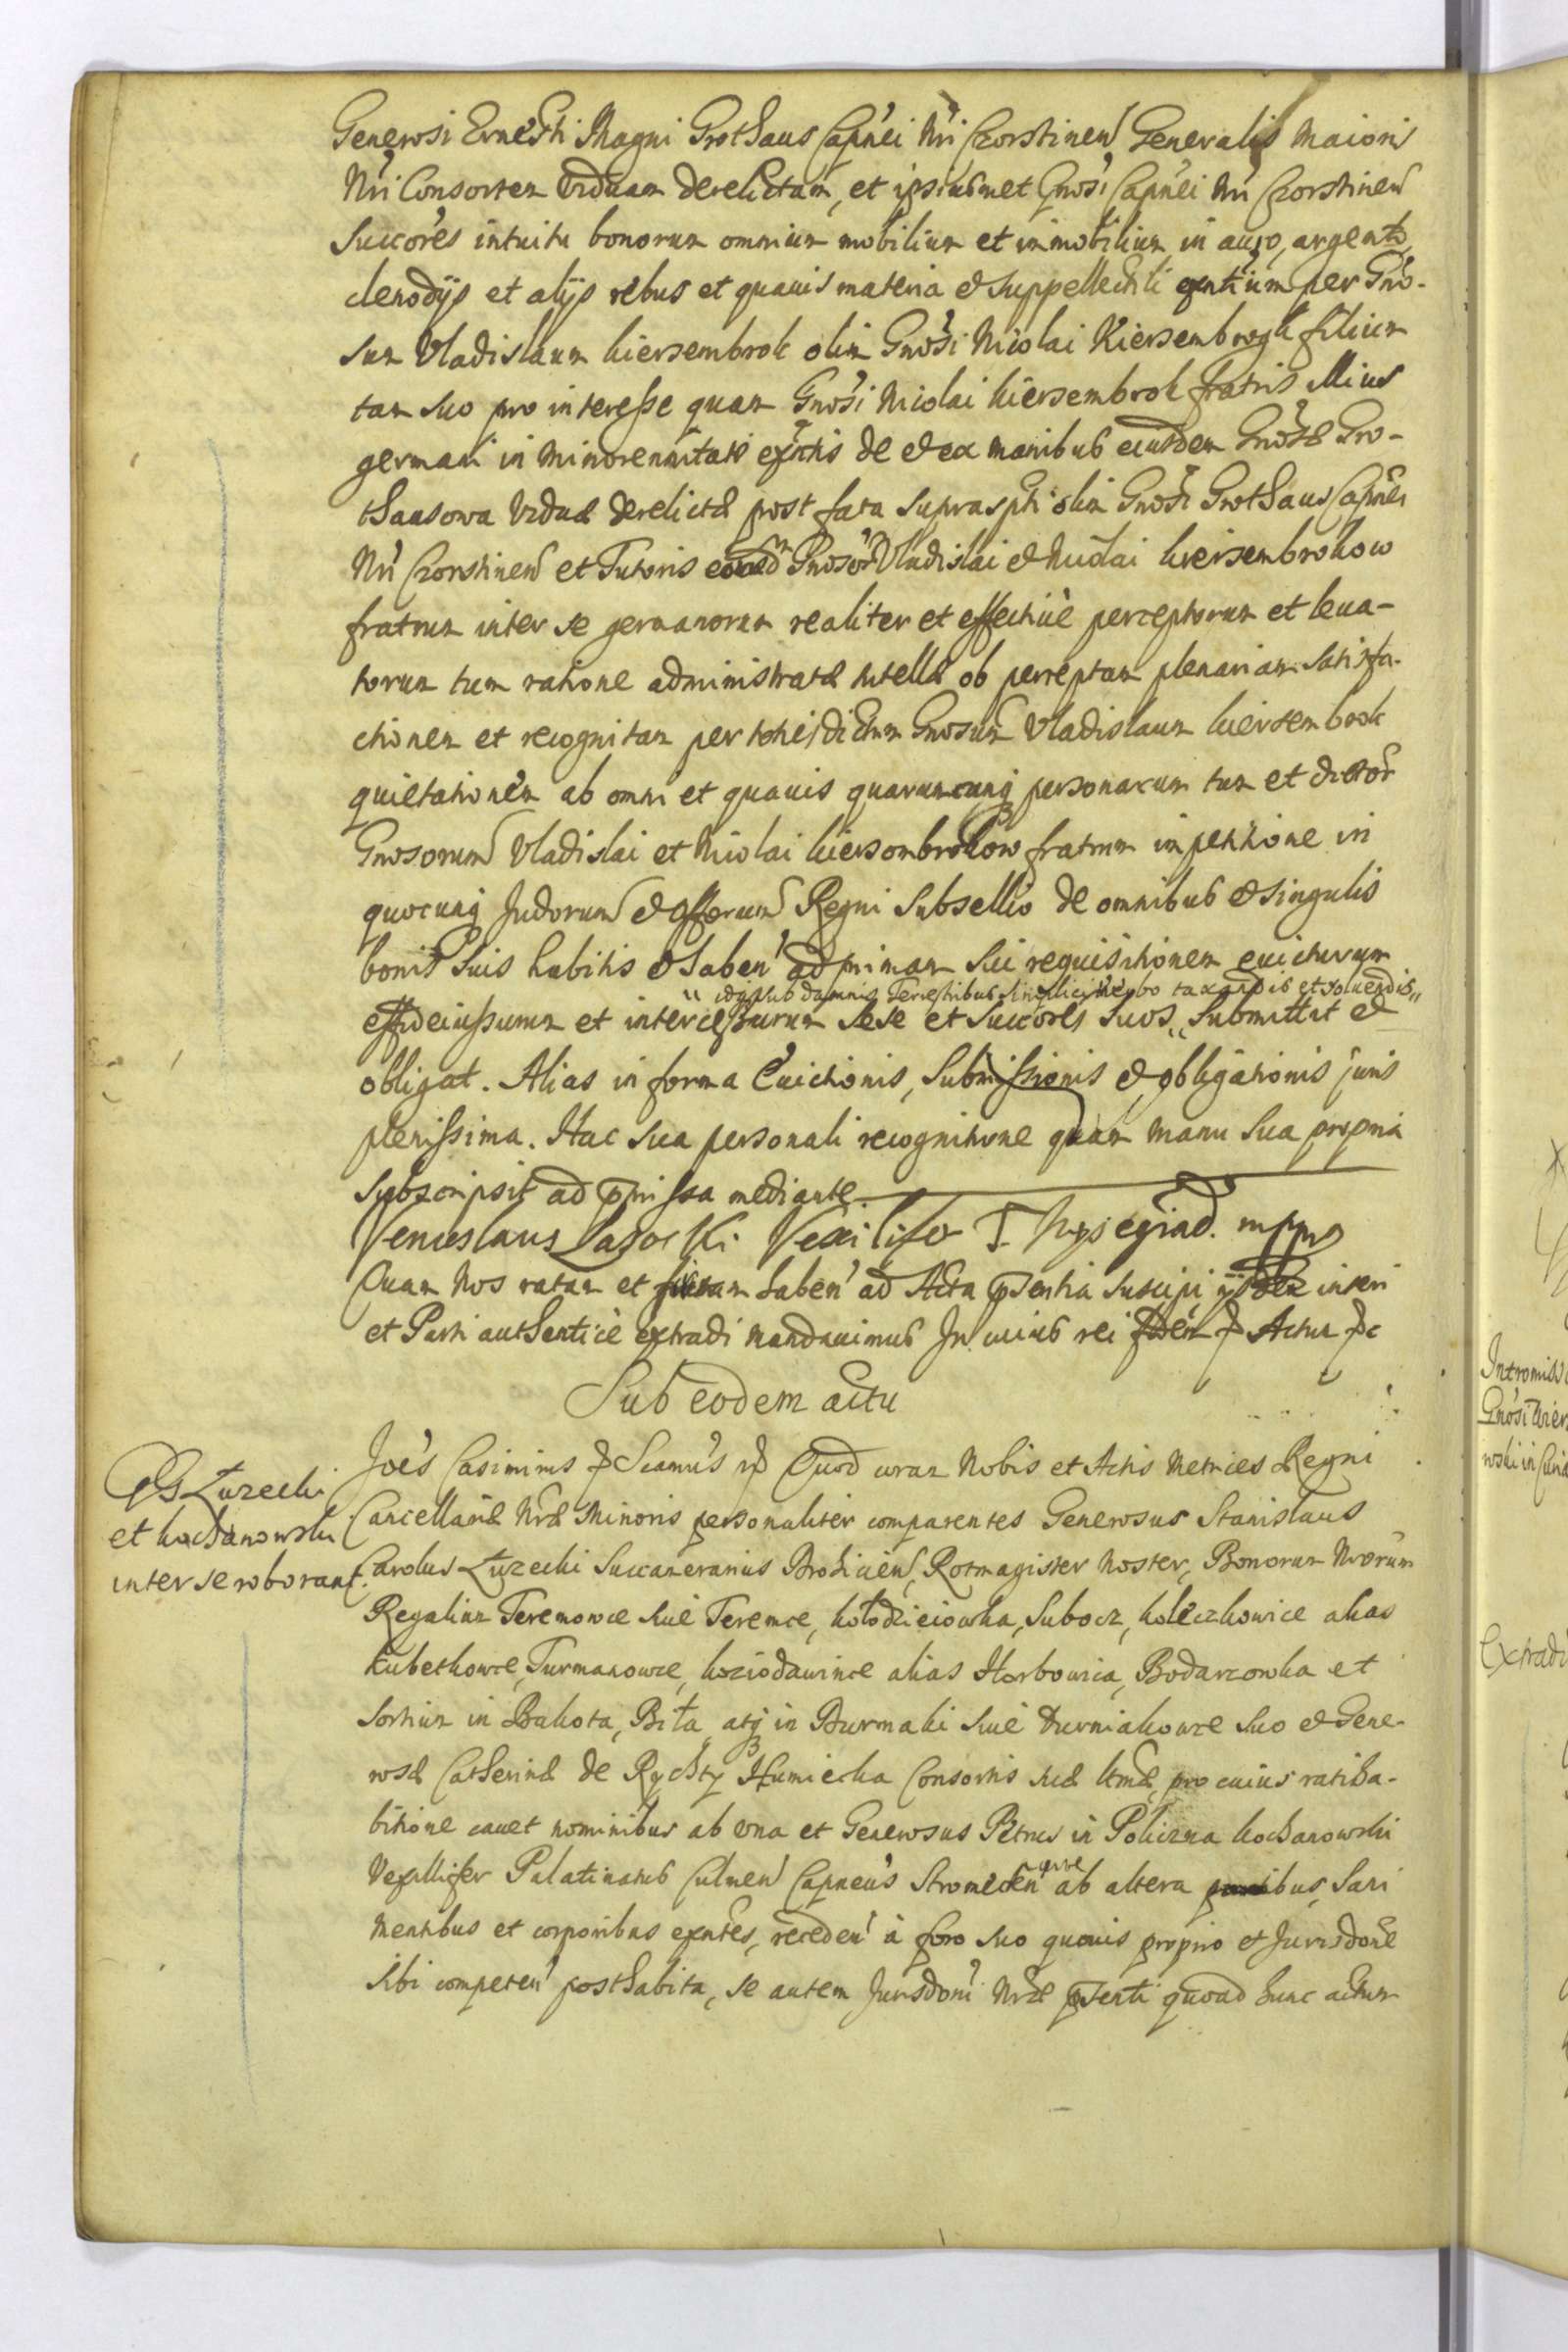 Generosi Ernesti Magni Grothaus Capnei Nri Czorstinen Generalis Maioris
Nri Consortem viduam derelictam, et ipsiusmet Gnosi Capnei Nri Czorstinen
Succores intuitu bonorum omnium mobilium et immobilium in auro, argento,
clenodijs et alijs rebus et quavis materia et suppellectili exntium per Gno-
sum Vladislaum kiersembrok olim Gnosi Nicolai Kiersembrogk filium
tam suo pro interesse quam Gnosi Nicolai kiersembrok fratris illius
germani in minorennitate exntis de et ex manibus eiusdem Gnosæ Gro-
thausowa viduæ derelictæ post fata suprascpti olim Gnosi Grothaus Capnei
Nri Czorstinen et Tutoris eorund Gnosor Vladislai et Nicolai kiersembrokow
fratrum inter se germanorum realiter et effective perceptorum et leua-
torum tum ratione administratæ tutellæ ob perceptam plenariam satisfa-
ctionem et recognitam per totiesdictum Gnosum Vladislaum kiersembrok
quietationem ab omni et quavis quarumcunq personarum tum et dictor
Gnosorum Vladislai et Nicolai kiersombrokow fratrum impetitione in
quocunq Judiorum et Offiorum Regni Subsellio de omnibus et singulis
bonis suis habitis et haben ad primam sui requisitionem euicturum
idq sub damnis Terrestribus simplici verbo taxandis et soluendis
effideiussurum et intercessurum sese et Succores suos submittit et
obligat. Alias in forma Euictionis, Submissionis et obligationis juris
plenissima. Hac sua personali recognitione quam manu sua propria
subscripsit ad pmissa mediante
Venceslaus Lasocki Vexilifer T. Wyszegrad. mppr
Quam nos ratam et gratam haben ad Acta psentia suscipi ijsdem inseri
et Parti authentice extradi mandauimus In cuius rei fidem & Actum &c
Sub eodem actu
GG Łuzecki
et kochanowski
inter se roborant.
Joes Casimirus & Scamus & Quod coram Nobis et Actis Metrices Regni
Cancellariæ Nræ Minoris personaliter comparentes Generosus Stanislaus
Carolus Łuzecki Succamerarius Brohicien, Rotmagister Noster, Bonorum Nrorum
Regalium Teremowce siue Teremce, kołodzieiowka, Subocz, koleczkowice alias
kubetkowce, Furmanowce, koziodawince alias Horbowica, Bodarzowka et
Sortium in Bakota, Biła atq in Burmaki siue Durniakowce suo et Gene-
rosæ Catherinæ de Rychty Humiecka Consortis suæ ltmæ, pro cuius ratiha-
bitione cauet nominibus ab vna et Generosus Petrus in Policzna kochanowski
Vexillifer Palatinatus Culmen Capneus Stromecen parte ab altera partibus, Sani
mentibus et corporibus exntes, receden à foro suo quouis proprio et Jurisdone
sibi competen posthabita, se autem Jurisdoni Nræ psenti quoad hunc actum
Intromiss
Gnosi
wski in
Extradi